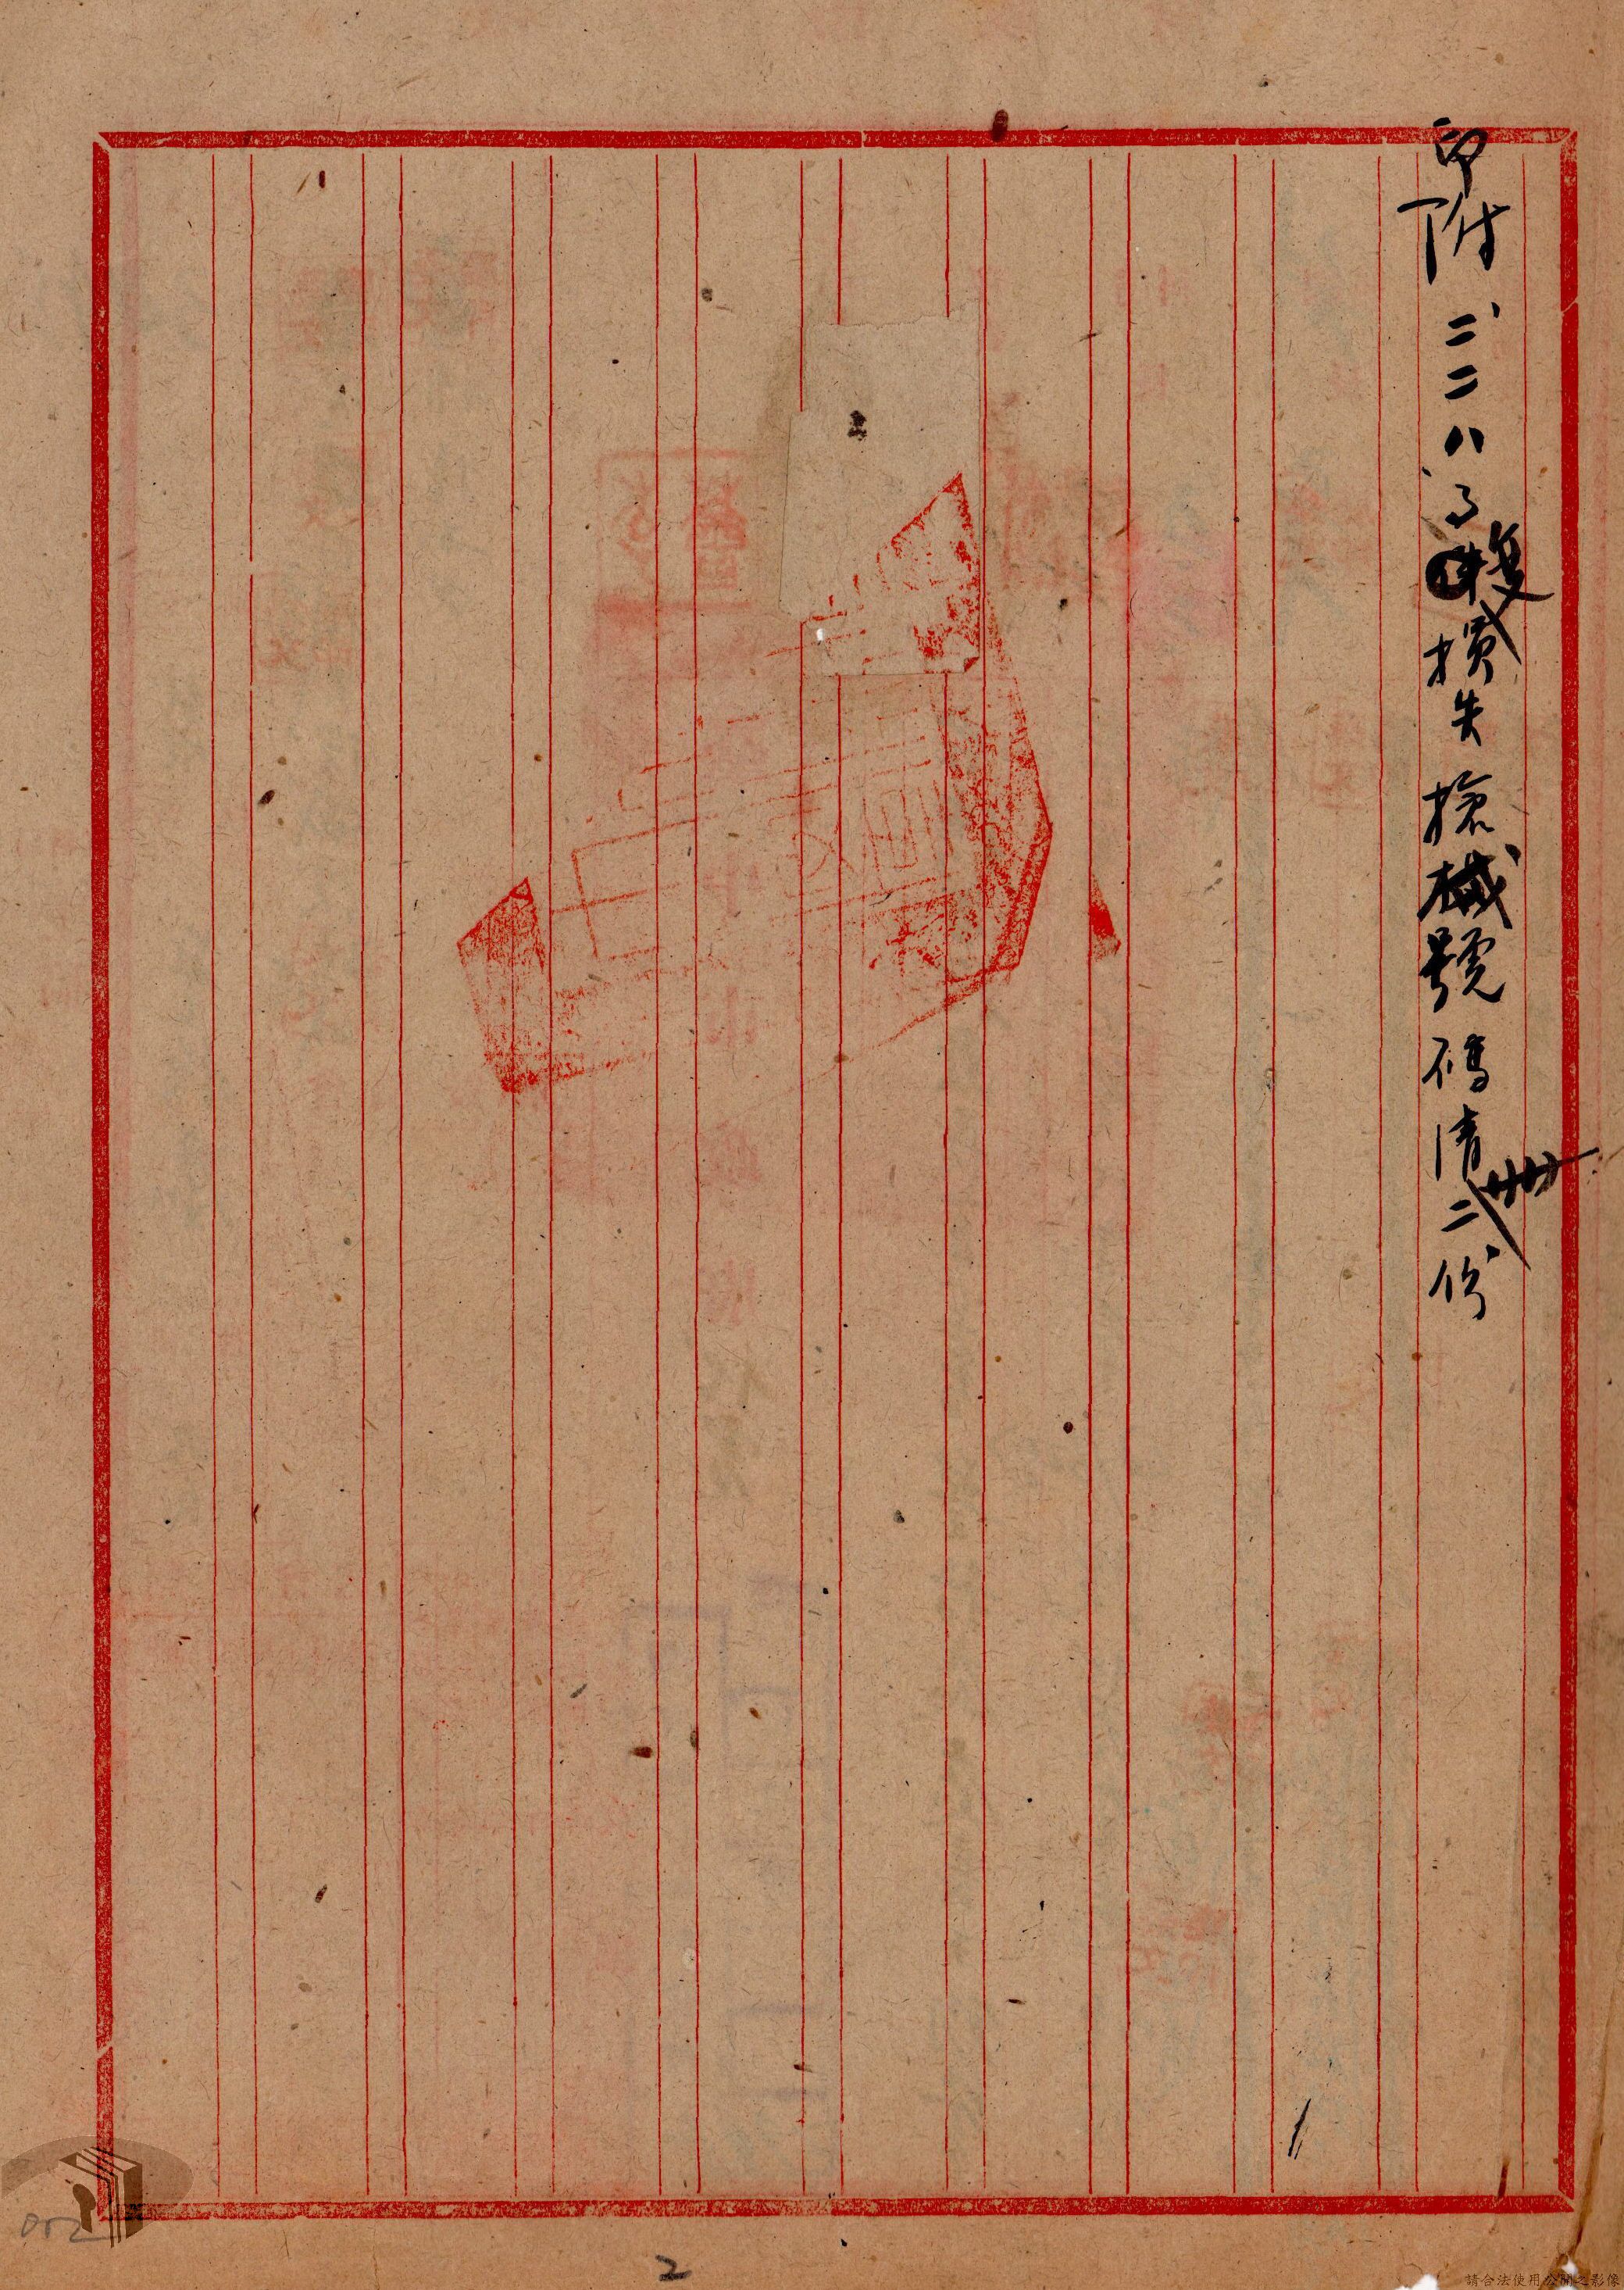 附二、二八事變損失搶械號碼清冊二份
2
052
請合法使用公開之影像